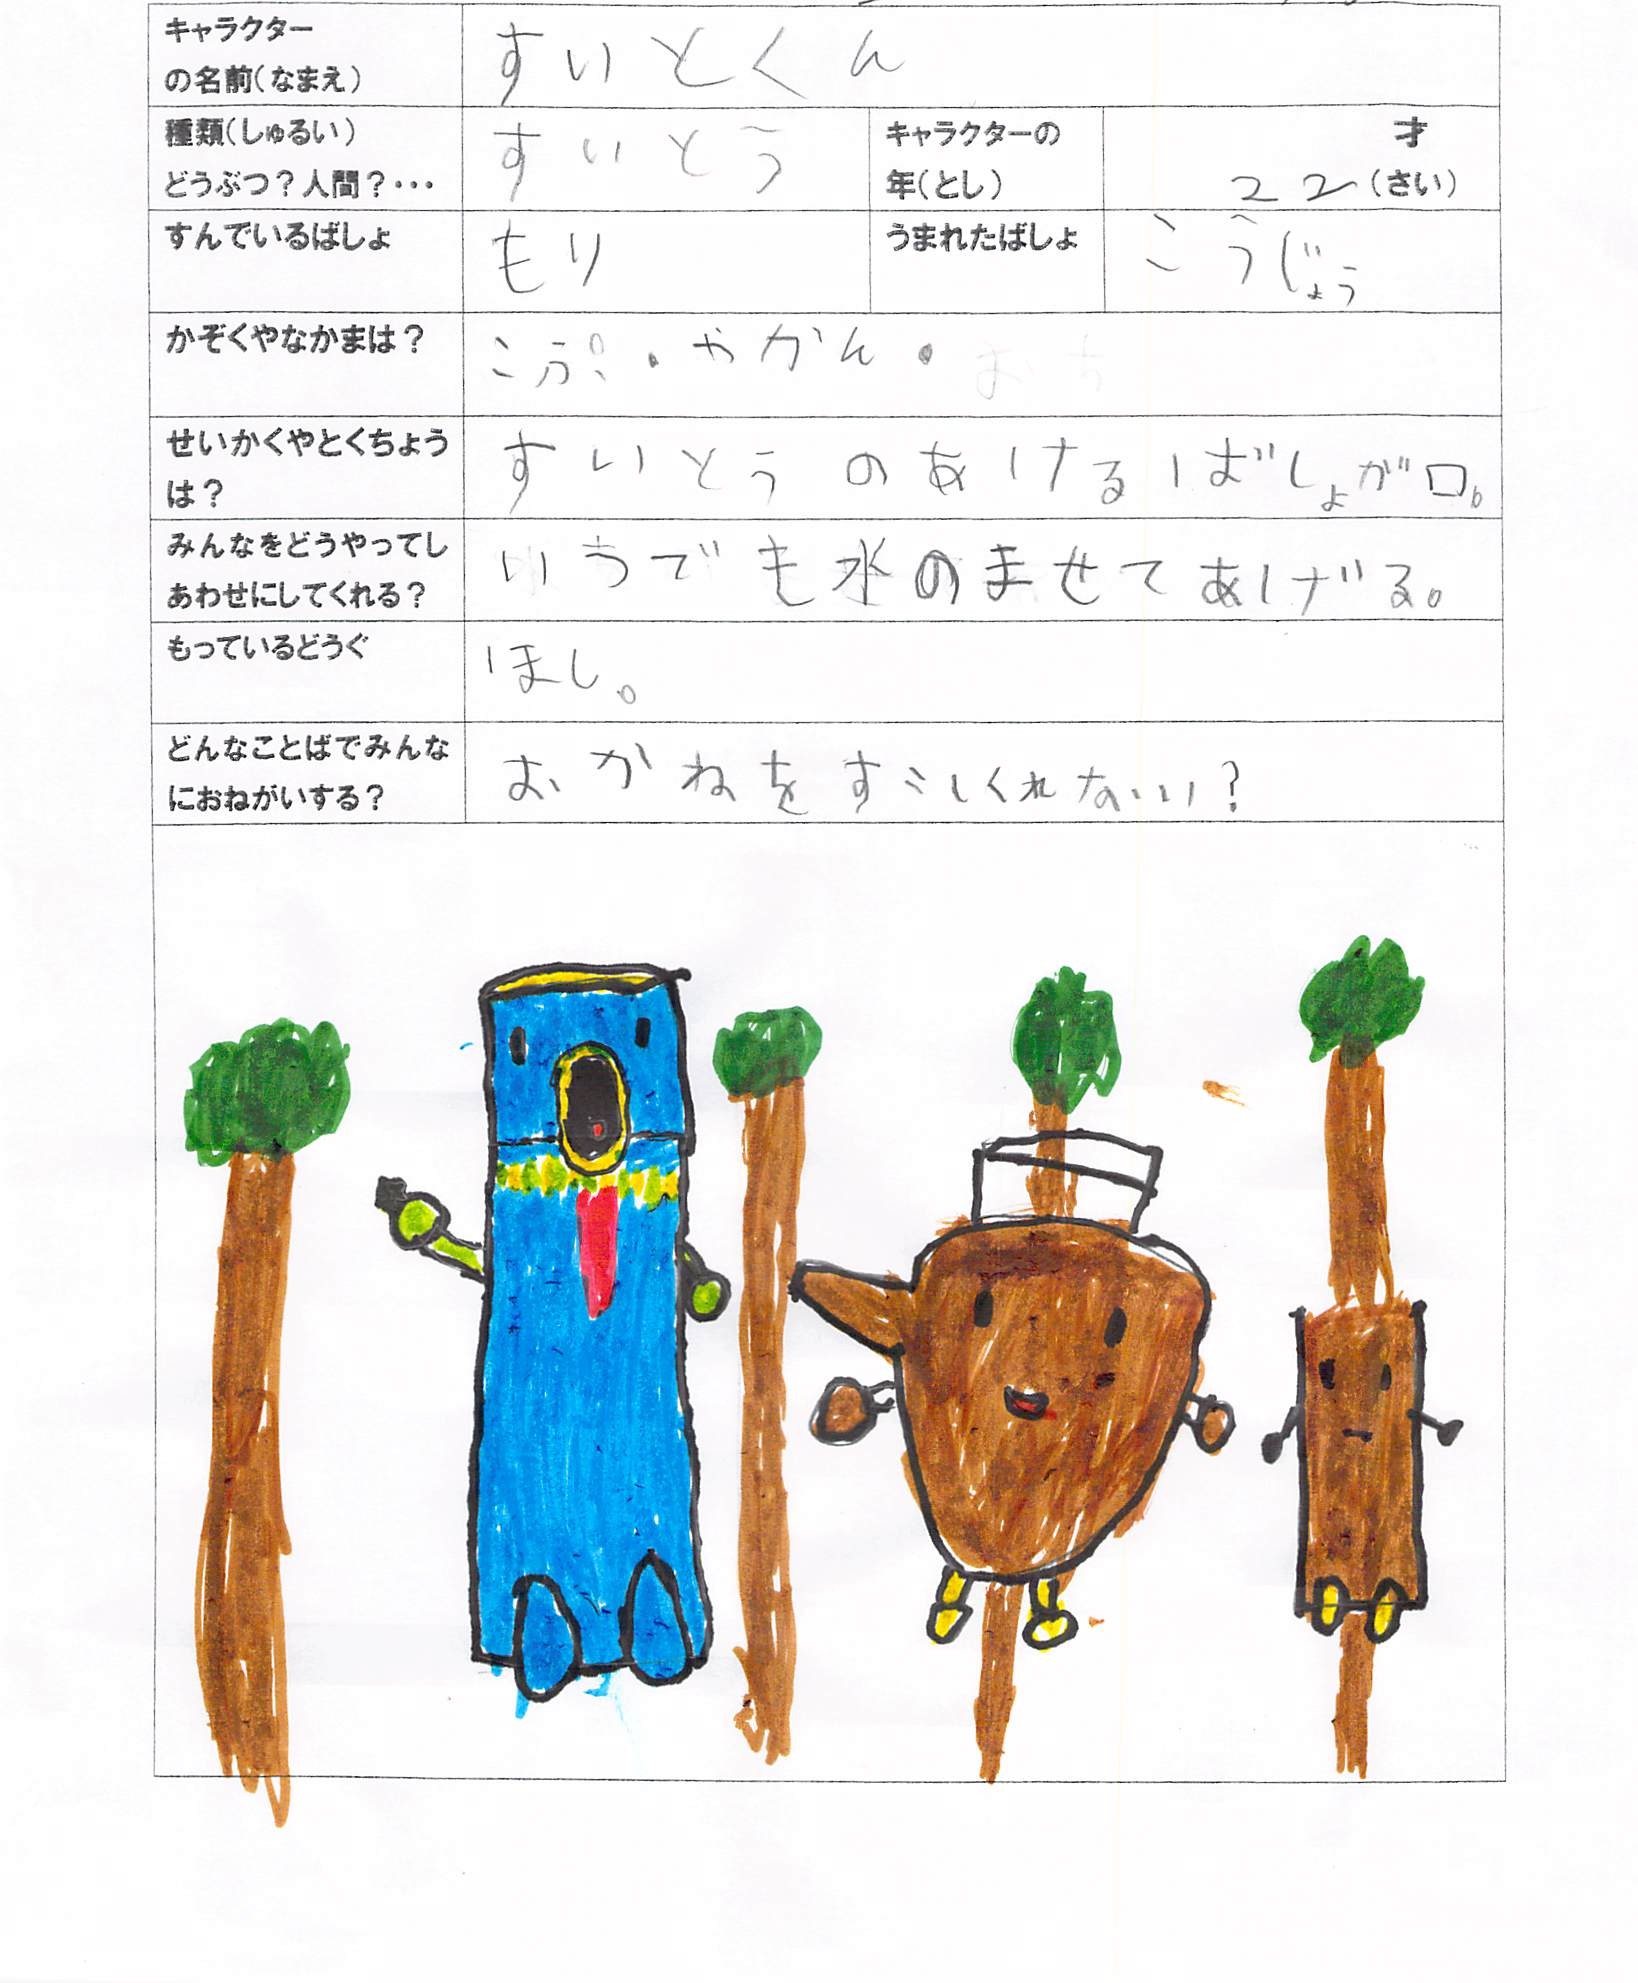 キャラクター
の名前(なまえ)
すいとくん
種類(しゅるい)
どうぶつ?人間?・・・
すいとう
キャラクターの
年(とし)
才
22(さい)
すんでいるばしょ
もり
うまれたばしょ
こうじょう
かぞくやなかまは?
こっぷ・やかん・
せいかくやとくちょう
は?
すいとうのあけるばしょが口。
みんなをどうやってし
あわせにしてくれる?
いつでも水のませてあげる。
もっているどうぐ
ほし。
どんなことばでみんな
におねがいする?
おかねをすこしくれないい?